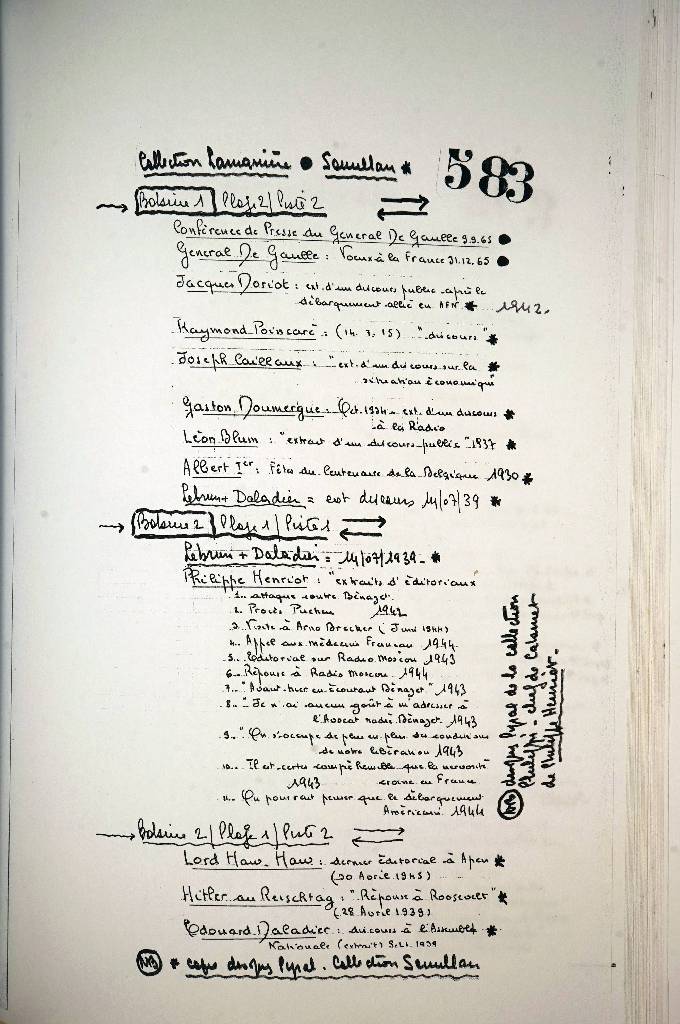 Collection Lamarnière ● Semullan *
583
→ Bobine 1 | Plage 2 | Piste 2
Conférence de Presse du General De Gaulle 9.9.65 ●
General De Gaulle : Voeux à la France 31.12.65 ●
Jacques Doriot : ext. d'un discours public après le
débarquement allié en AFN * 1942.
Raymond Poincaré : (14. 3. 15) "discours" *
Joseph Caillaux : "ext. d'un discours sur la *
situation économique"
Gaston Doumergue : Oct. 1934 - ext. d'un discours *
à la Radio
Léon Blum : "extrait d'un discours public" 1937 *
Albert Ier : Fêtes du Centenaire de la Belgique 1930 *
Lebrun + Daladier = ext discours 14/07/39 *
→ Bobine 2 | Plage 1 | Piste 1
Lebrun + Daladier = 14/07/1939 - *
Philippe Henriot : "extraits d'éditoriaux
1.. attaque contre Bénazet.
2. Procès Pucheu 1942
3. Visite à Arno Brecker (Juin 1944)
4.. Appel aux médecins Français 1944.
5.. Editorial sur Radio Moscou 1943
6.. Réponse à Radio Moscou. 1944
7.. "Avant-hier en écoutant Bénazet" 1943
8.. "Je n'ai aucun goût à m'adresser à
l'Avocat Bénazet. 1943
9.. "On s'occupe de plus en plus des conditions
de notre libération 1943
10.. Il est certes compréhensible que la nervosité
1943 croisse en France
11.. On pourrait penser que le débarquement
Américain 1944
NB disques Pyral de la collection
Philippi - chef de Cabinet
de Philippe Henriot.
→ Bobine 2 | Plage 1 | Piste 2
Lord Haw-Haw : dernier éditorial à Apen *
(30 Avril 1945)
Hitler au Reischtag : "Réponse à Roosevelt" *
(28 Avril 1939)
Edouard Daladier : discours à l'Assemblée *
Nationale (extrait) Sept. 1939
NB * copie disques Pyral. Collection Semullan